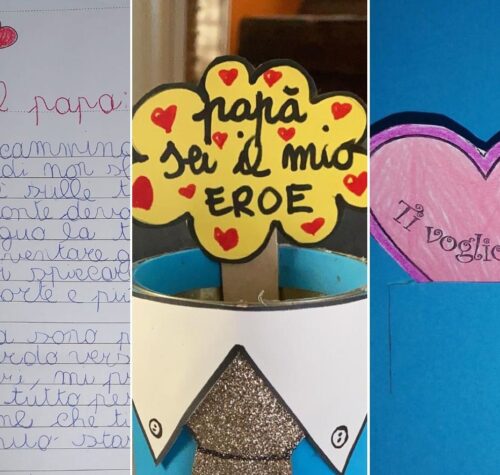 l papà:
cammina
di non s
sulle t
onte devo
la t
ventare
spiccar
orte e più
sono p
ardo vers
ri, mi p
tutto per
me che ti
star
papà
sei il mio
EROE
Ti voglio